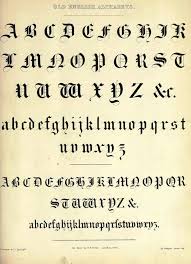 OLD ENGLISH ALPHABETS.
A B C D E F G H I J K
L M N O P Q R S T
U V W X Y Z &c.
a b c d e f g h i j k l m n o p q r s t
u v w x y z
A B C D E F G H I J K L M N O P Q R
S T U V W X Y Z &
a b c d e f g h i j k l m n o p q r s t u v w x y z